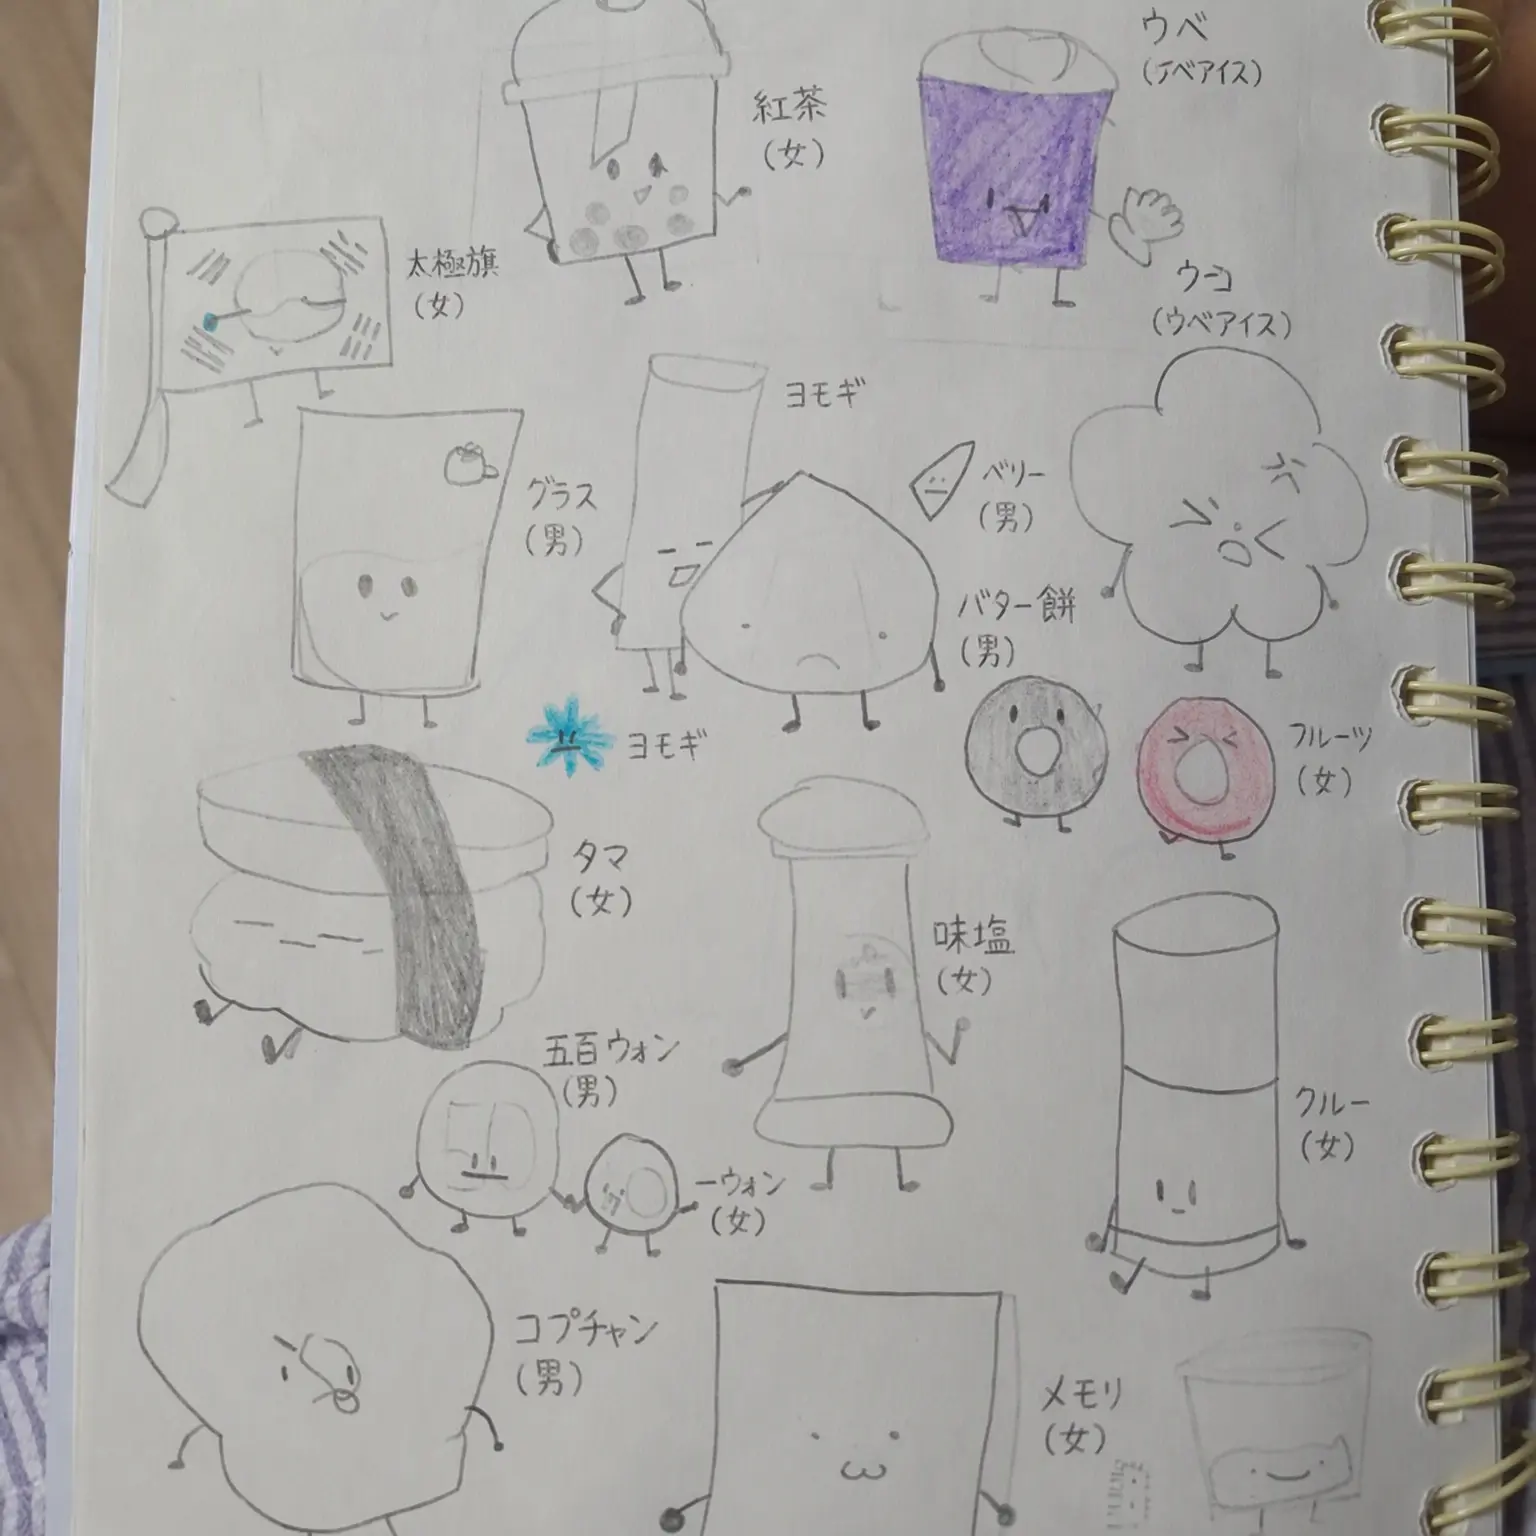 ウベ
(ウベアイス)
紅茶
(女)
太極旗
(女)
ウーコ
(ウベアイス)
ヨモギ
グラス
(男)
ベリー
(男)
バター餅
(男)
ヨモギ
フルーツ
(女)
タマ
(女)
味塩
(女)
五百ウォン
(男)
クルー
(女)
一ウォン
(女)
コプチャン
(男)
メモリ
(女)